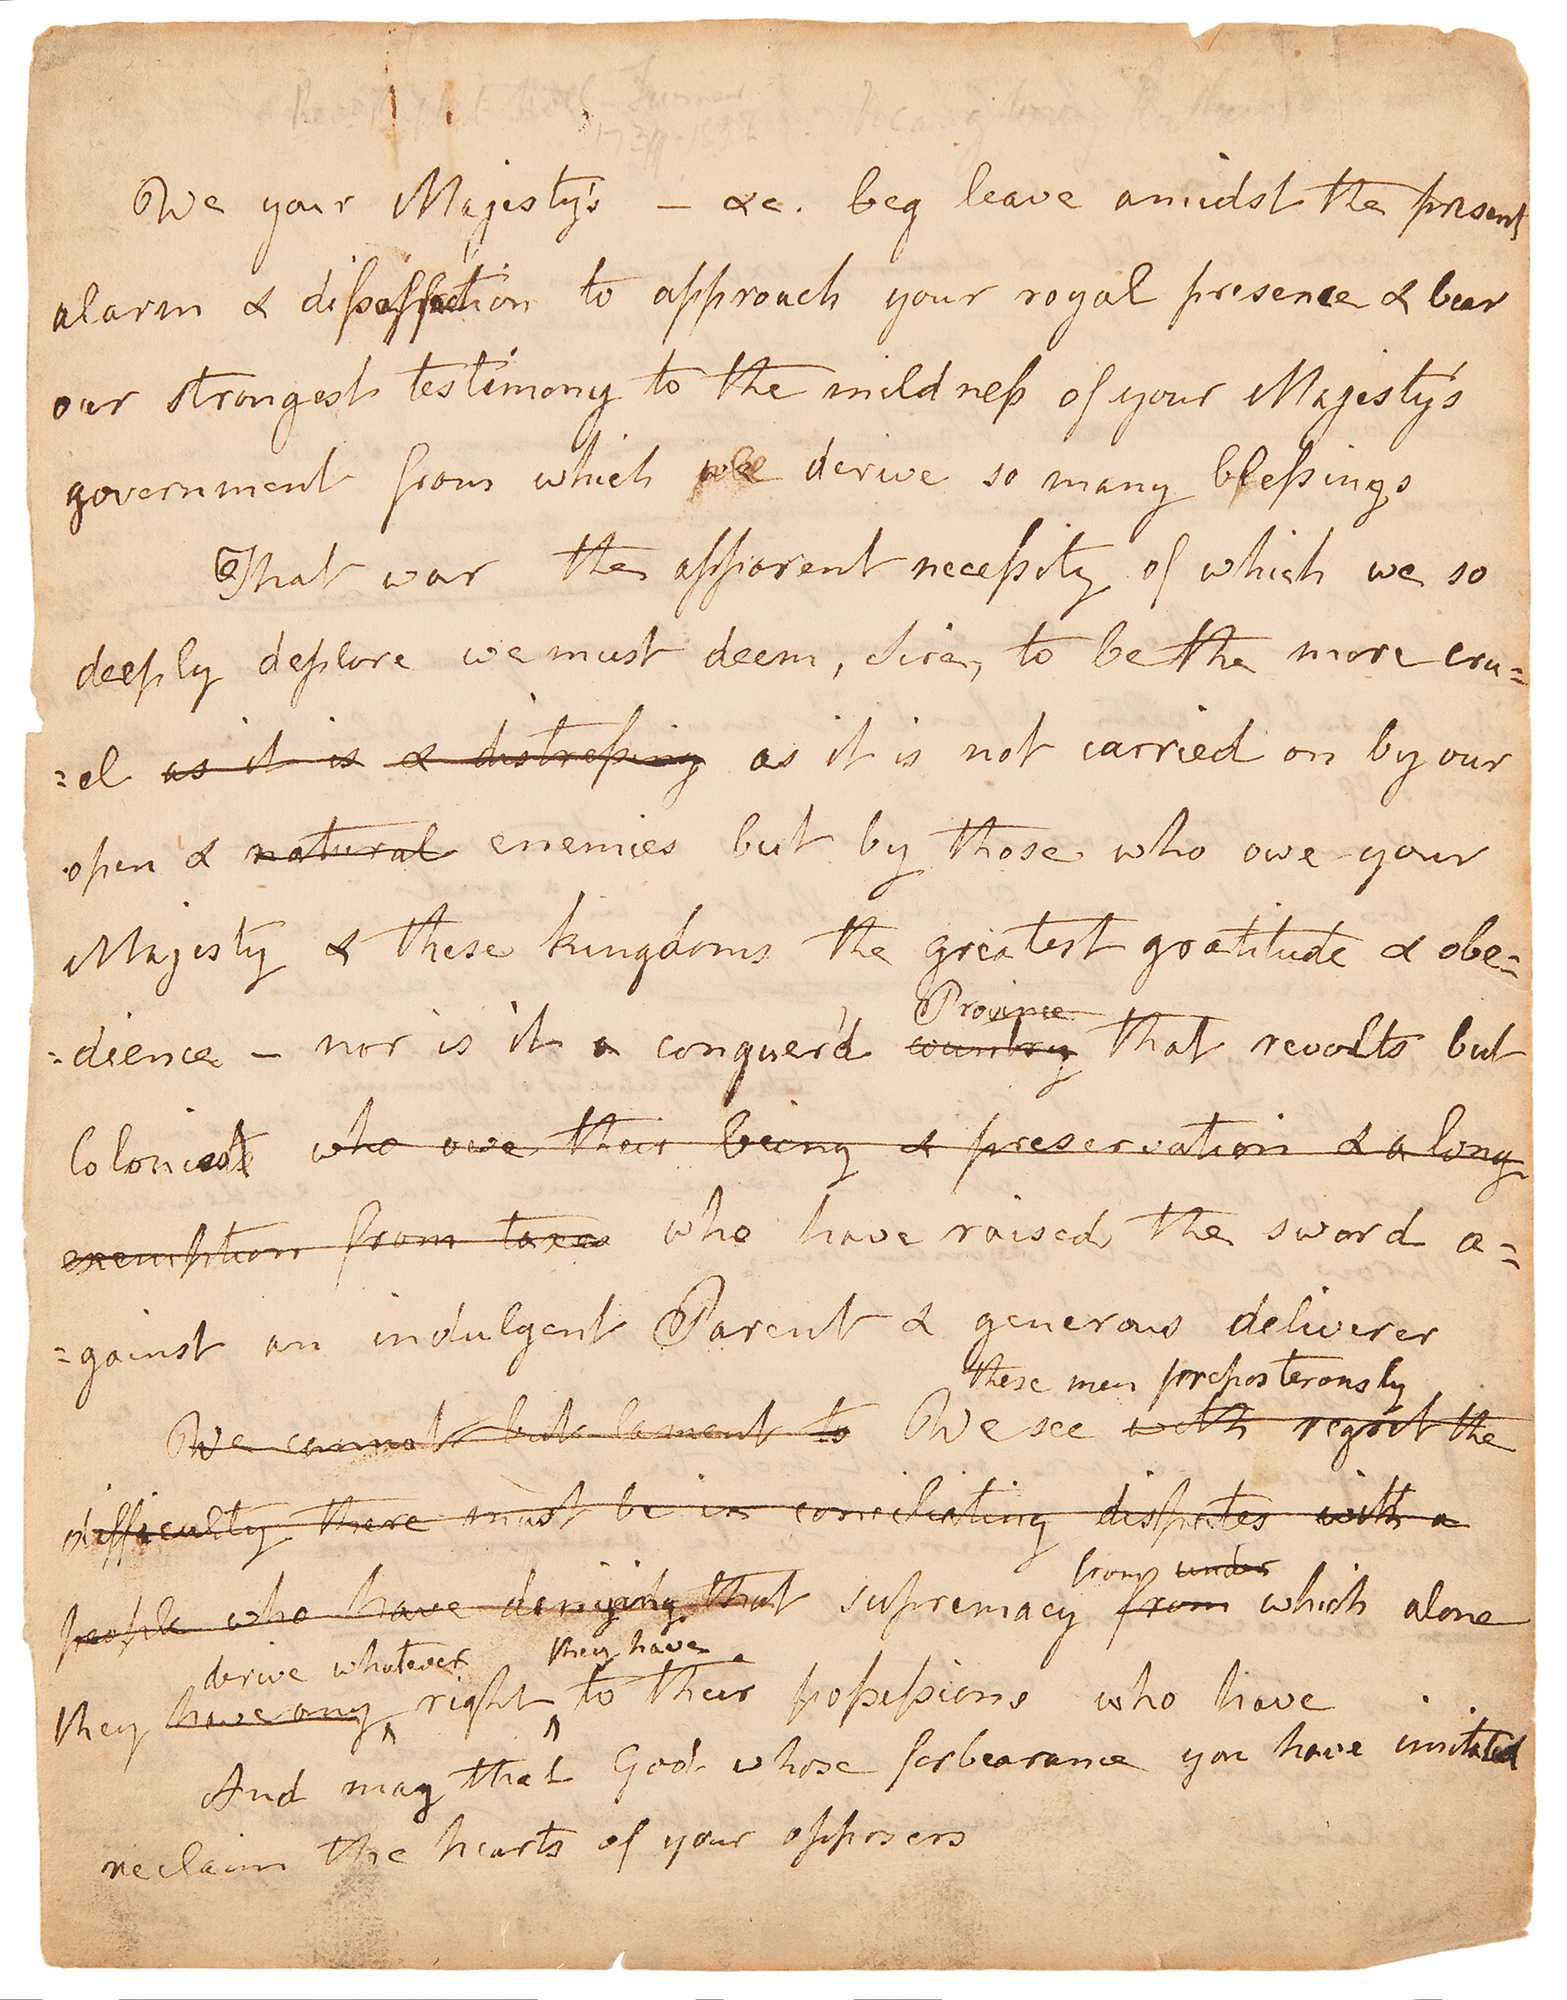 We your Majesty's — &c. beg leave amidst the present
alarm & dissaffection to approach your royal presence & bear
our strongest testimony to the mildness of your Majesty's
government from which we derive so many blessings
That war the apparent necessity of which we so
deeply deplore we must deem, Sire, to be the more cru=
=el as it is & distressing as it is not carried on by our
open & natural enemies but by those who owe your
Majesty & these kingdoms the greatest gratitude & obe=
Province
=dience — nor is it a conquer'd country that revolts but
Colonists who owe their being & preservation & a long
exemption from taxes who have raised the sword a=
=gainst an indulgent Parent & generous deliverer
these men preposterously
We cannot but lament to We see with regret the
difficulty there must be in conciliating disputes with a
from under
people who have denying that supremacy from which alone
derive whatever they have
they have any right to their possessions who have
And may that God whose forbearance you have imitated
reclaim the hearts of your opposers